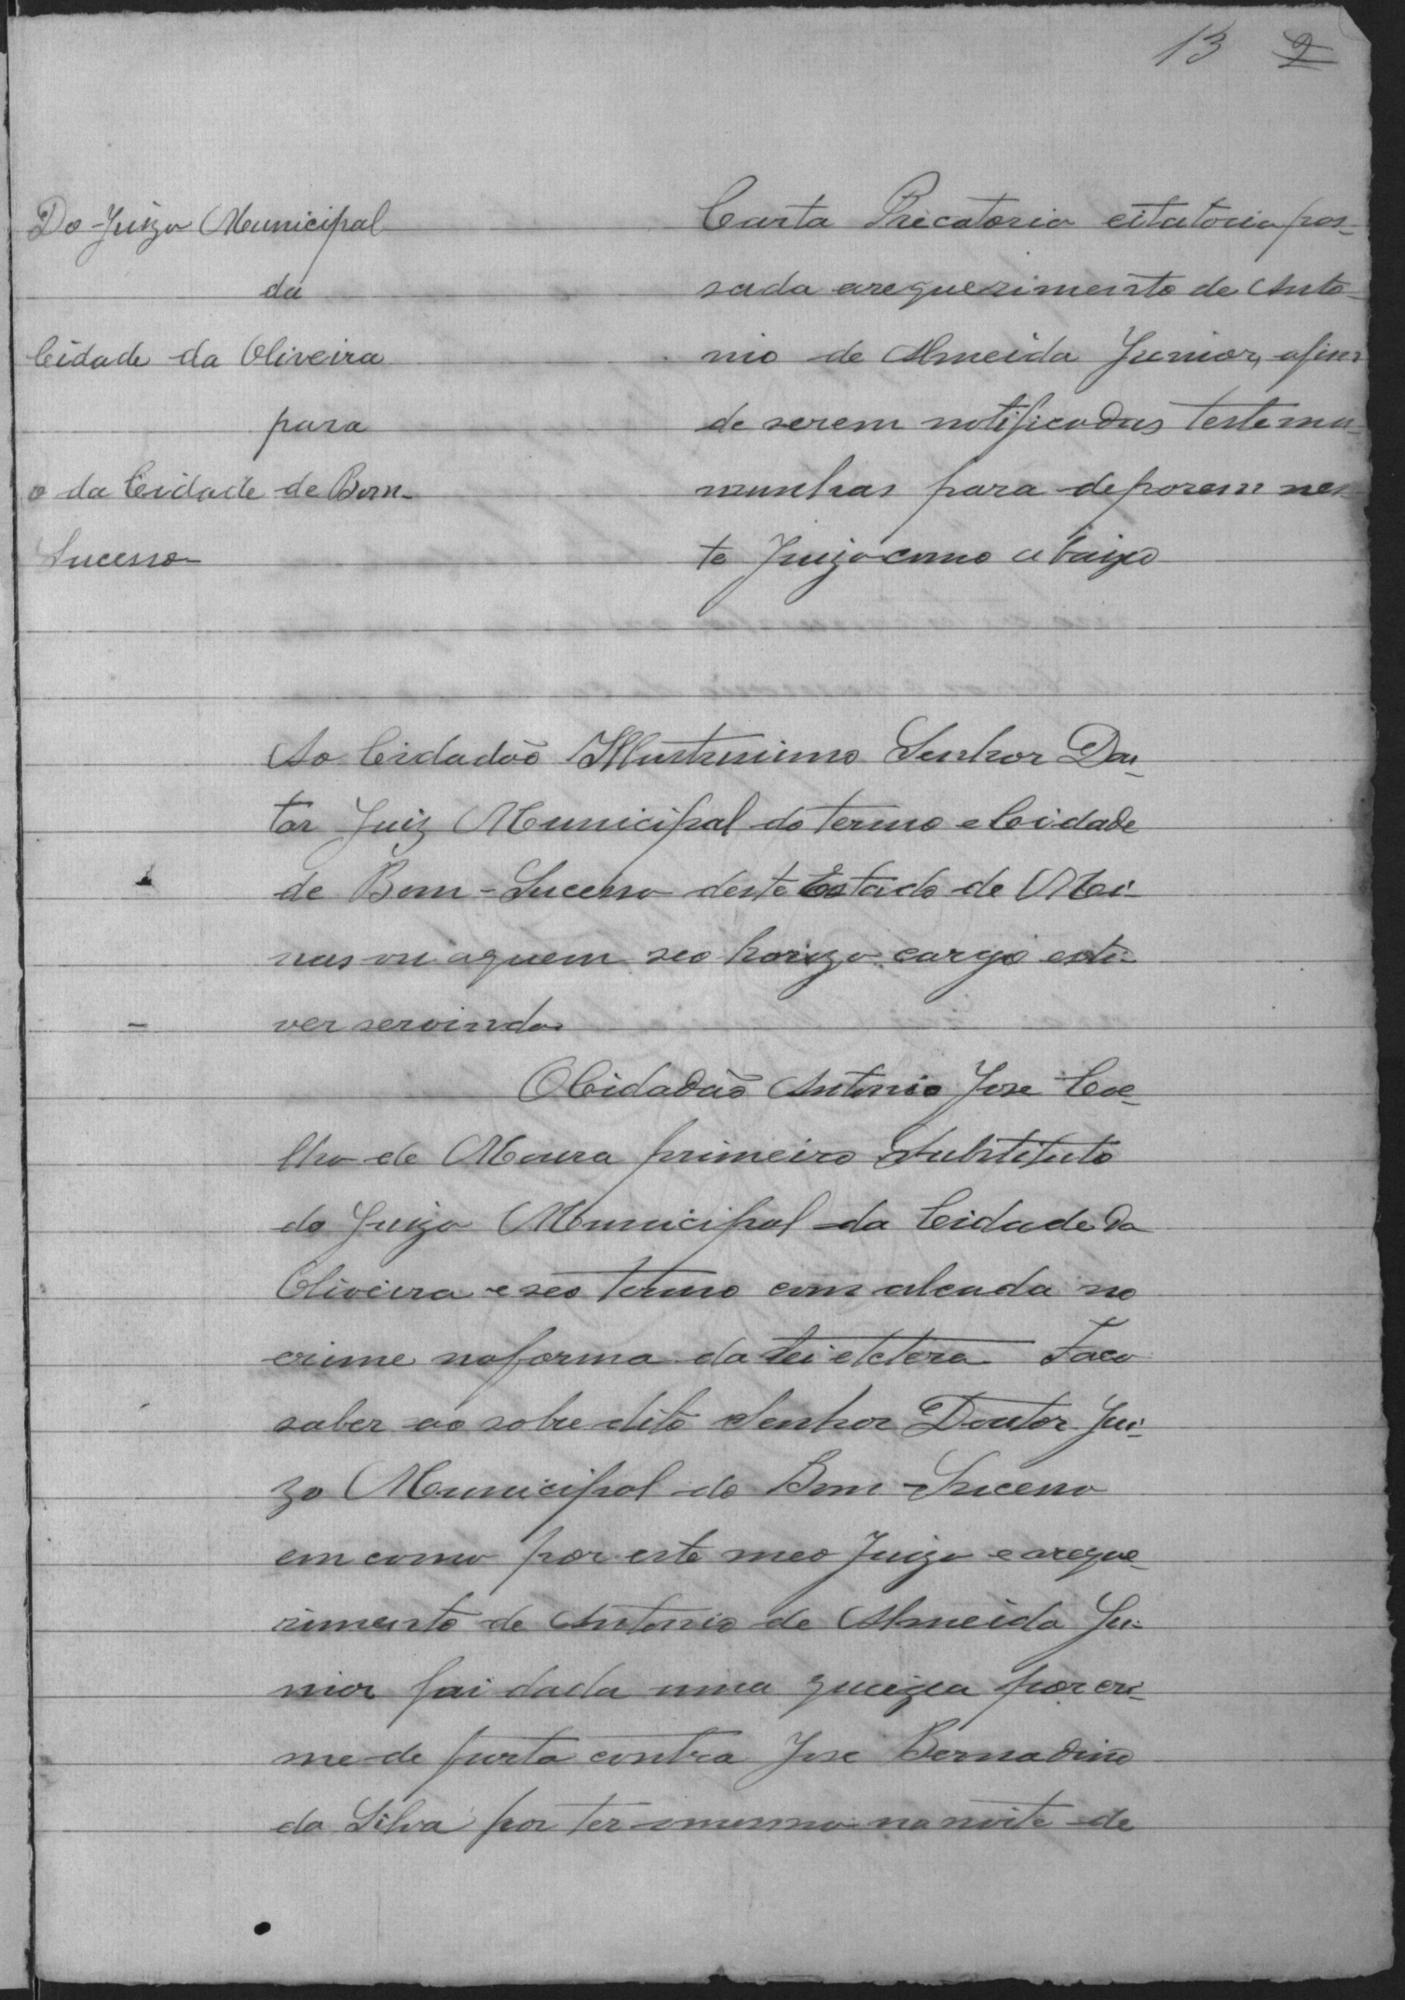 13 2
Do Juizo Municipal
da
Cidade da Oliveira
para
o da Cidade de Bom-
Sucesso
Carta Precatoria citatoria pas-
sada arequerimento de Anto-
nio de Almeida Junior, afim
de serem notificadas testemu-
munhas para deporem nes-
te Juizo como abaixo
Ao Cidadão Illustrissimo Senhor Dou-
tor Juiz Municipal do termo e Cidade
de Bom-Sucesso deste Estado de Mi-
nas ou aquem seo cargo esti-
ver servindo
O Cidadão Antonio Jose Coe-
lho de Moura primeiro Substituto
do Juizo Municipal da Cidade da
Oliveira e seo termo com alcada no
crime naforma da Lei etctera Faco
saber ao sobre dito Senhor Doutor Jui-
zo Municipal do Bom-Sucesso
em como por este meo Juizo e areque-
rimento de Antonio de Almeida Ju-
nior foi dada uma queixa por cri-
me de furto contra Jose Bernadino
da Silva por ter o mesmo na noite de